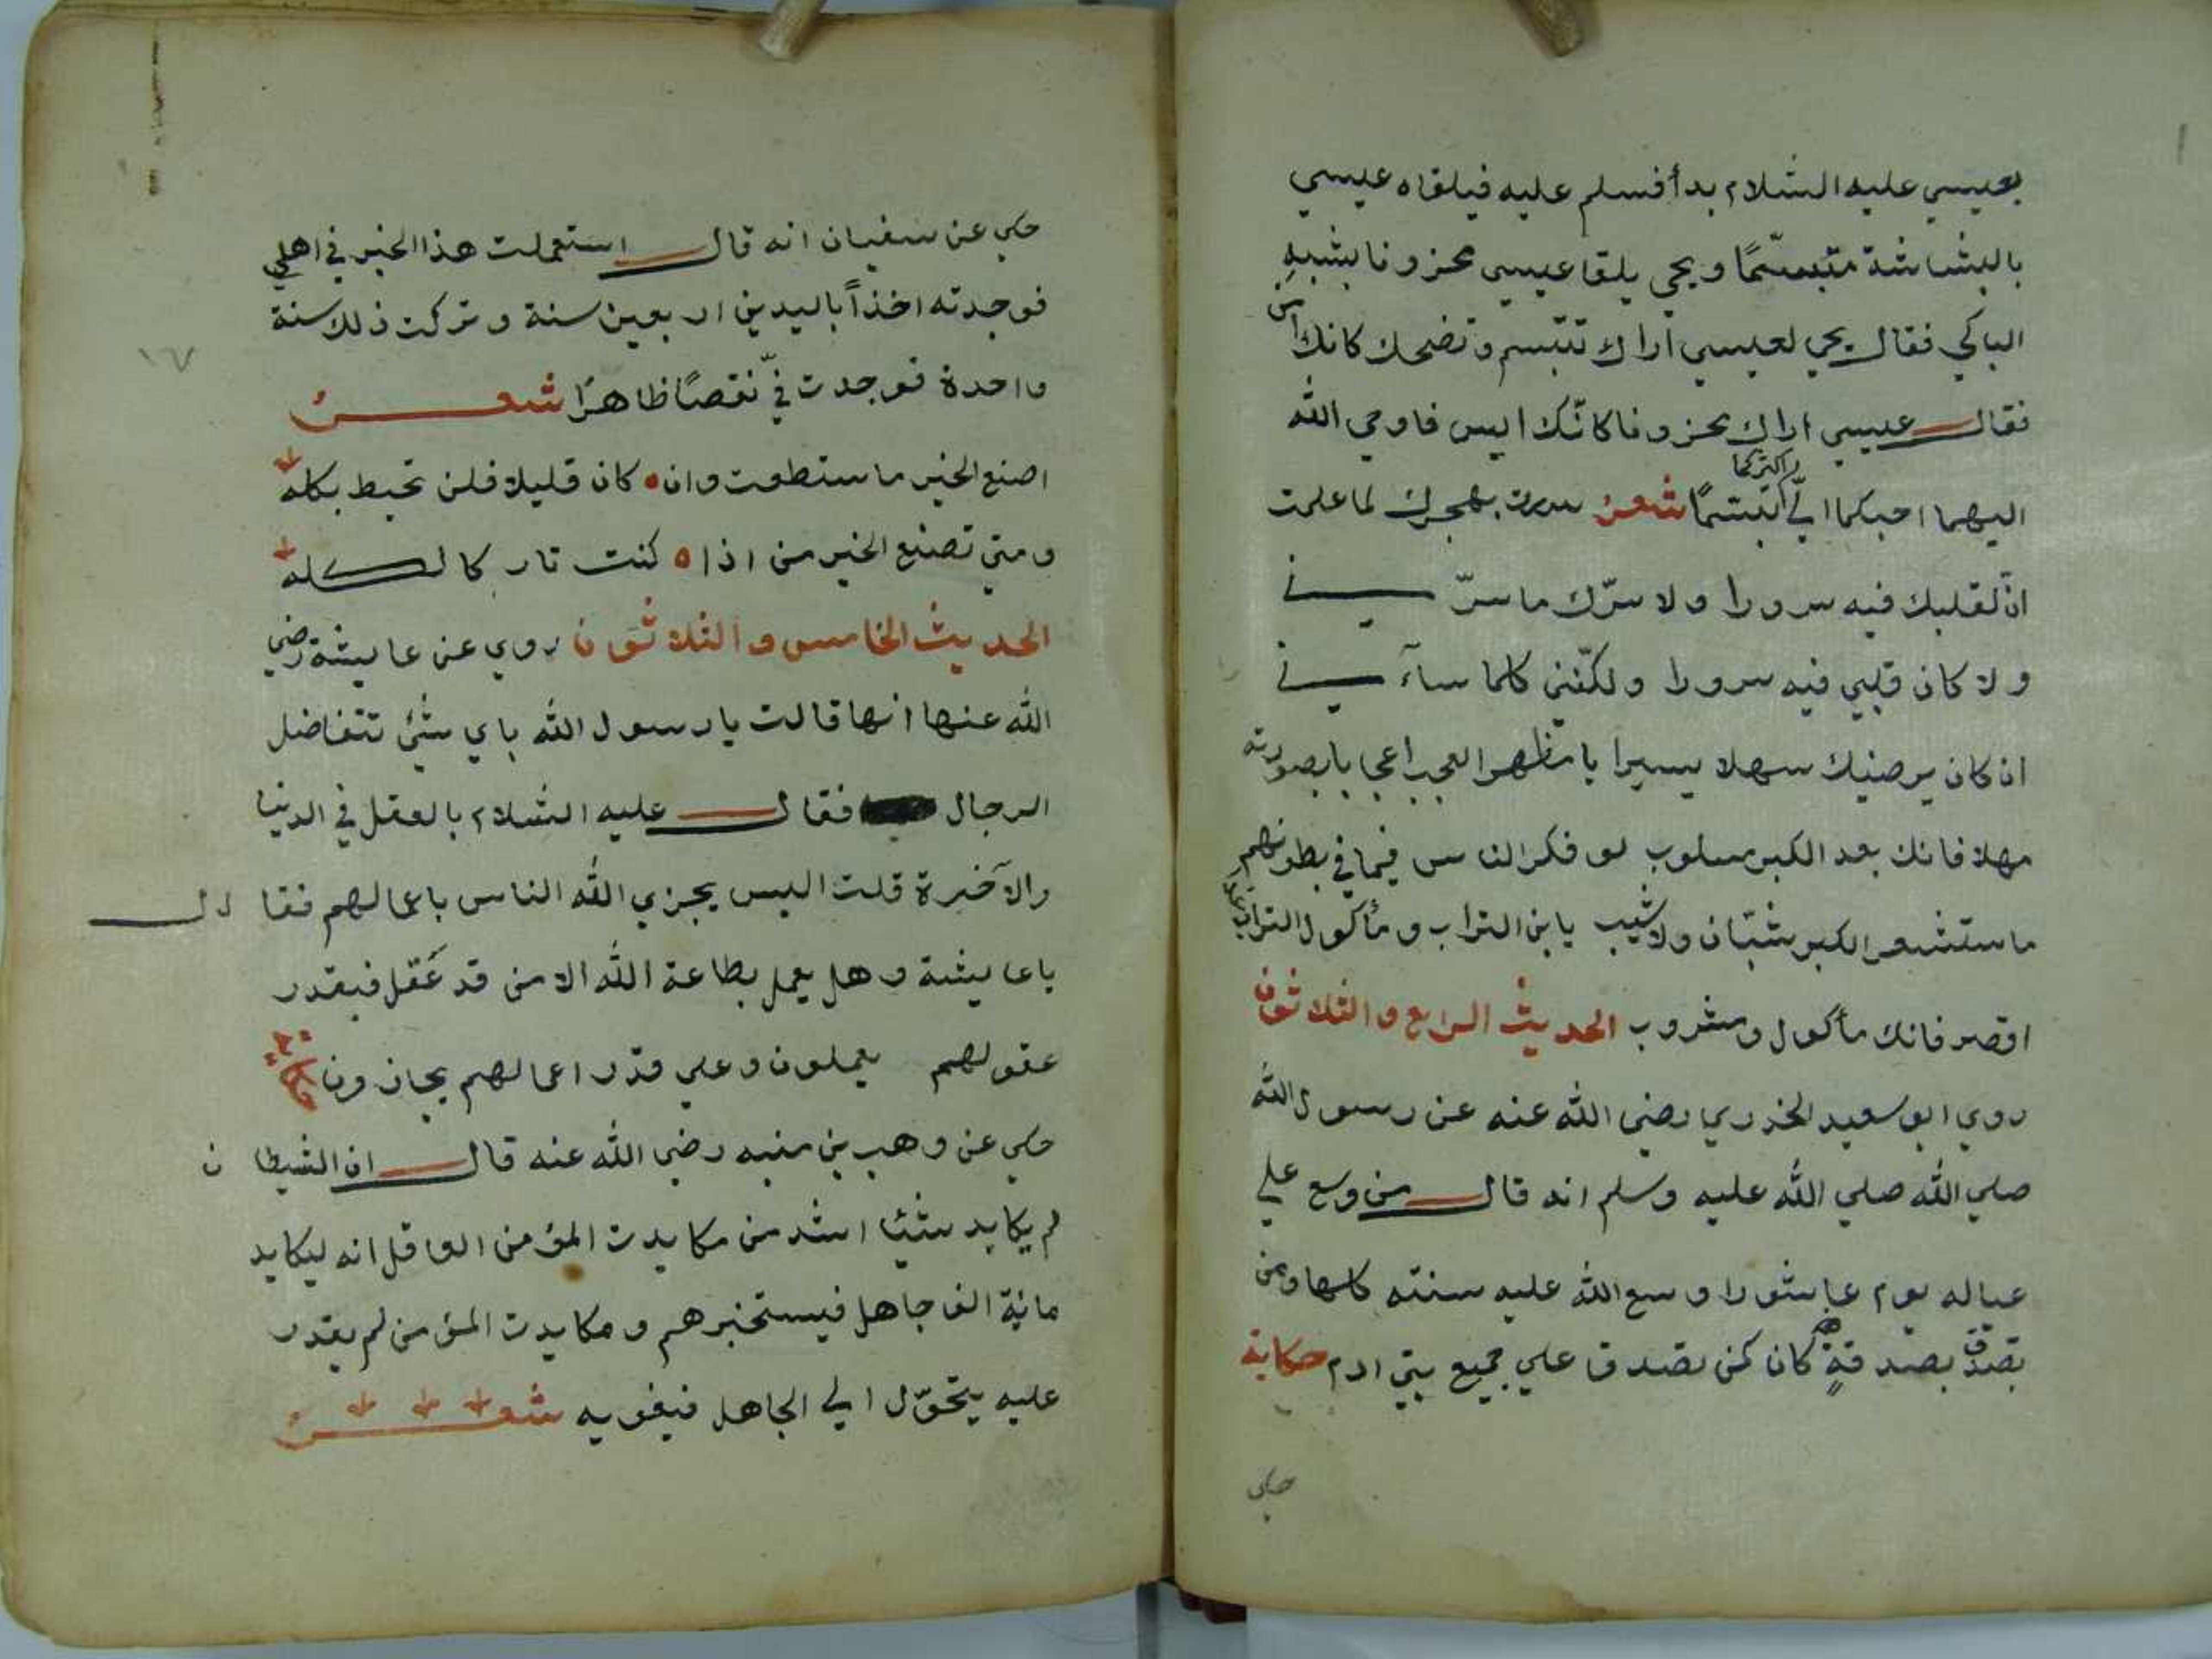 بعيسي عليه السلام بدأ فسلم عليه فيلقاه عيسي
بالبشاشة متبسّمًا ويحي يلقا عيسي محزونا بشبيه
الباكي فقال يحي لعيسي اراك تتبسم وتضحك كانك آمن
فقال عيسي اراك محزونا كانّك ايس فاوحي الله
اليهما احبكما اليّ اكثركما تبسّمًا شعر سررت بهجرك لما علمت
انّ لقلبك فيه سرورا ولا سرّك ما سرّني
ولا كان قلبي فيه سرورا ولكنّني كلما سآءني
ان كان يرضيك سهلا يسيرا يا مظهر العجب اعجابا بصورته
مهلا فانك بعد الكبر مسلوب لو فكر الناس فيما في بطونهم
ما ستشعر الكبر شبّان ولا شيب يا بن التراب ومأكول التراب غدا
اقصر فانك مأكول ومشروب الحديث الرابع والثلاثون
روي ابو سعيد الخدري رضي الله عنه عن رسول الله
صلي الله صلي الله عليه وسلم انه قال من وسع علي
عياله يوم عاشورا وسع الله عليه سنته كلها ومن
تصدّق بصدقةٍ كان كمن تصدق علي جميع بني ادم حكاية
حكي
١٦٧
حكي عن سفيان انه قال استعملت هذا الخبر في اهلي
فوجدته اخذاً باليدين اربعين سنة وتركت ذلك سنة
واحدة فوجدت فيّ نقصًا ظاهرًا شعر
اصنع الخير ما ستطعت وان كان قليلا فلن تحيط بكله
ومتي تصنع الخير من اذا كنت تاركا لكله
الحديث الخامس والثلاثون روي عن عايشة رضي
الله عنها انها قالت يا رسول الله باي شئ تتفاضل
الرجال فقال عليه السلام بالعقل في الدنيا
والآخرة قلت اليس يجزي الله الناس باعمالهم فقال
يا عايشة وهل يعمل بطاعة الله الا من قد عَقل فبقدر
عقولهم يعملون وعلي قدر اعمالهم يجازون حكاية
حكي عن وهب بن منبه رضي الله عنه قال ان الشيطان
لم يكايد شيئا اشد من مكايدت المؤمن العاقل انه ليكايد
مائية الف جاهل فيستخبرهم ومكايدت المؤمن لم يقدر
عليه يتحوّل الي الجاهل فيغويه شعر